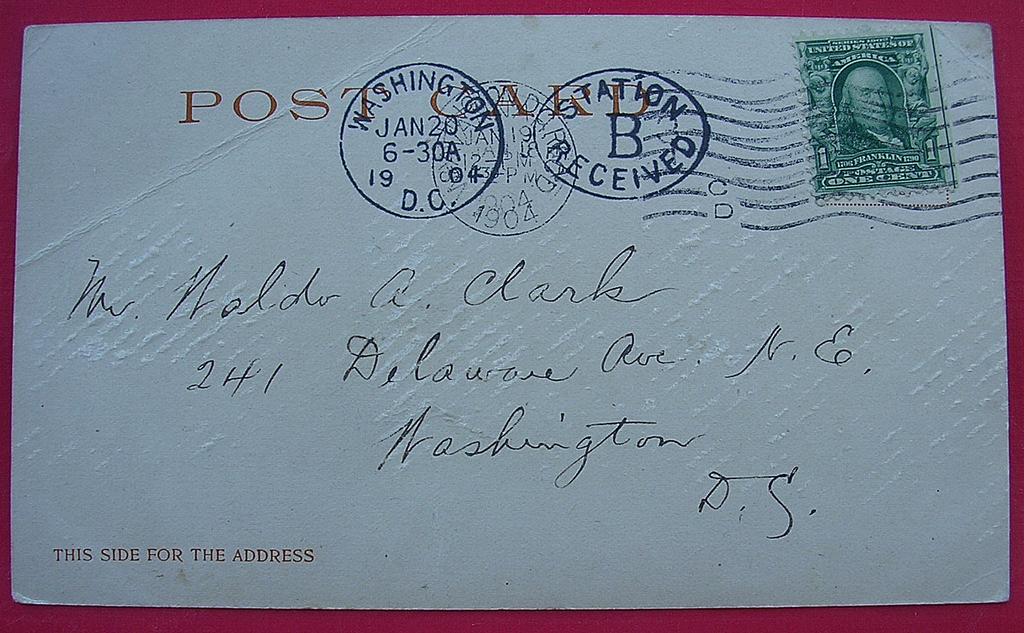 POST CARD
WASHINGTON
JAN 20
6-30A
19 04
D.C.
JAN 19
1904
STATION
B
RECEIVED
C
D
SERIES 1902
UNITED STATES OF
AMERICA
1706 FRANKLIN 1790
1 POSTAGE 1
ONE CENT
Mr. Waldo A. Clark
241 Delaware Ave. N.E.
Washington
D.C.
THIS SIDE FOR THE ADDRESS